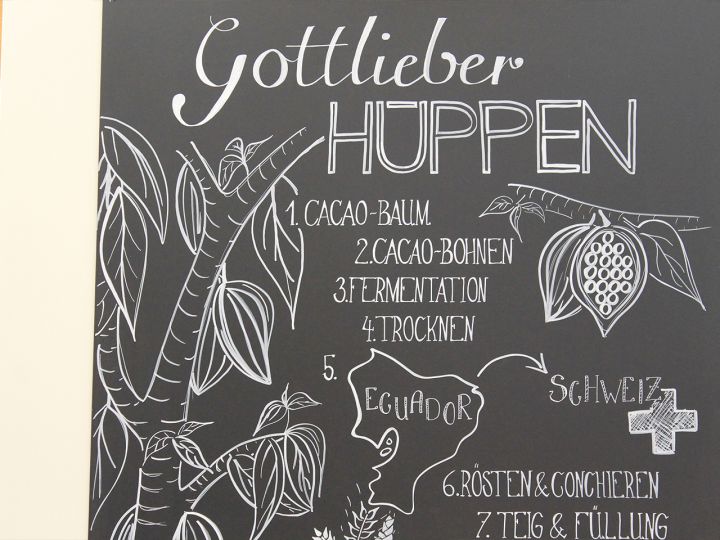 Gottlieber
HÜPPEN
1. CACAO-BAUM
2. CACAO-BOHNEN
3. FERMENTATION
4. TROCKNEN
5.
ECUADOR
SCHWEIZ
6. RÖSTEN & CONCHIEREN
7. TEIG & FÜLLUNG